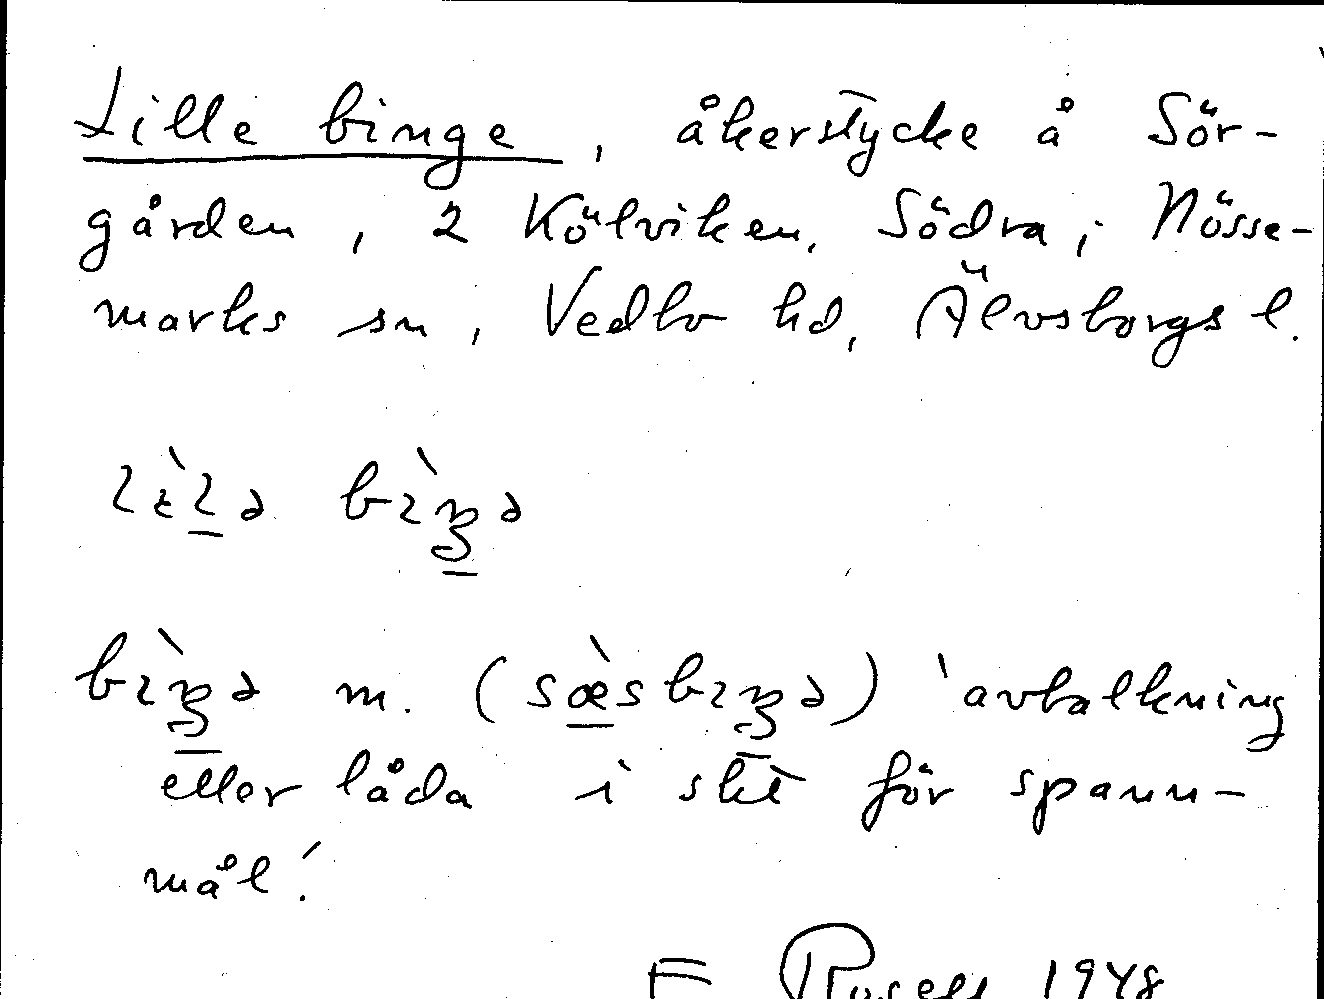 Lille binge, åkerstycke å Sör-
gården, 2 Kölviken, Södra, Nösse-
marks sn, Vedbo hd, Älvsborgs l.
lìlə bìŋə
bìŋə m. (sæ̀sbıŋə) 'avbalkning
eller låda i skt för spann-
mål'.
E Rosell 1948